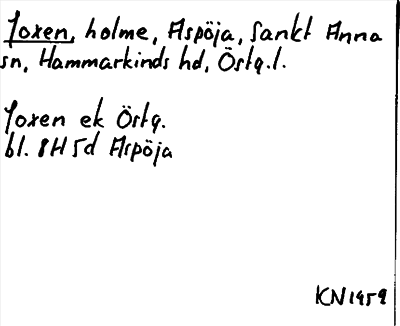 Joxen, holme, Aspöja, Sankt Anna
sn, Hammarkinds hd, Östg.l.
Joxen ek Östg.
bl. 8H 5d Aspöja
KN 1959